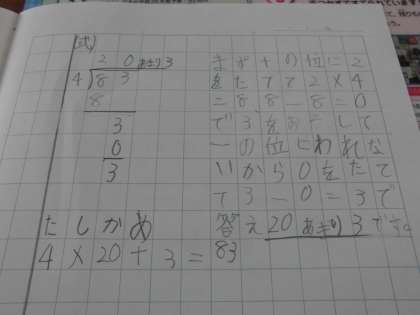 (式)
2 0 あまり3
4 8 3
8
3
0
3
まず十の位に2
をたてて2×4
=8、8-8=0
で3をおろして
一の位にわれな
いから0をたて
て3-0=3で
答え20あまり3です。
たしかめ
4×20+3=83